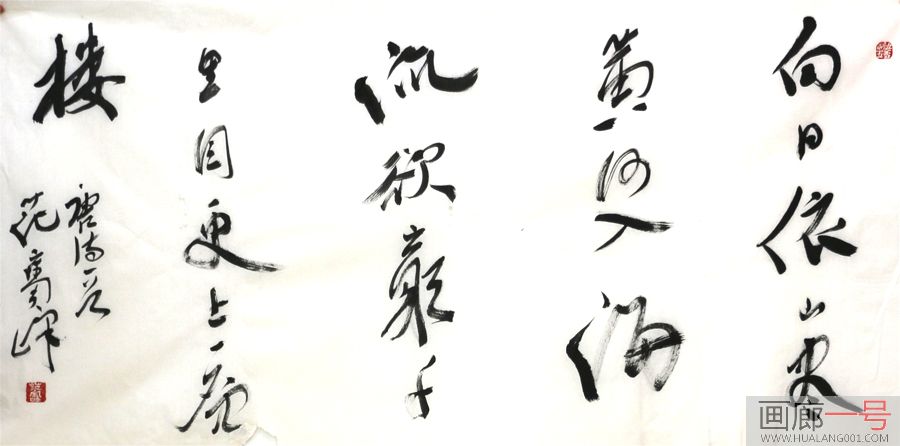 白日依山尽
黄河入海
流欲窮千
里目更上一层
楼
画廊一号
WWW.HUALANG001.COM